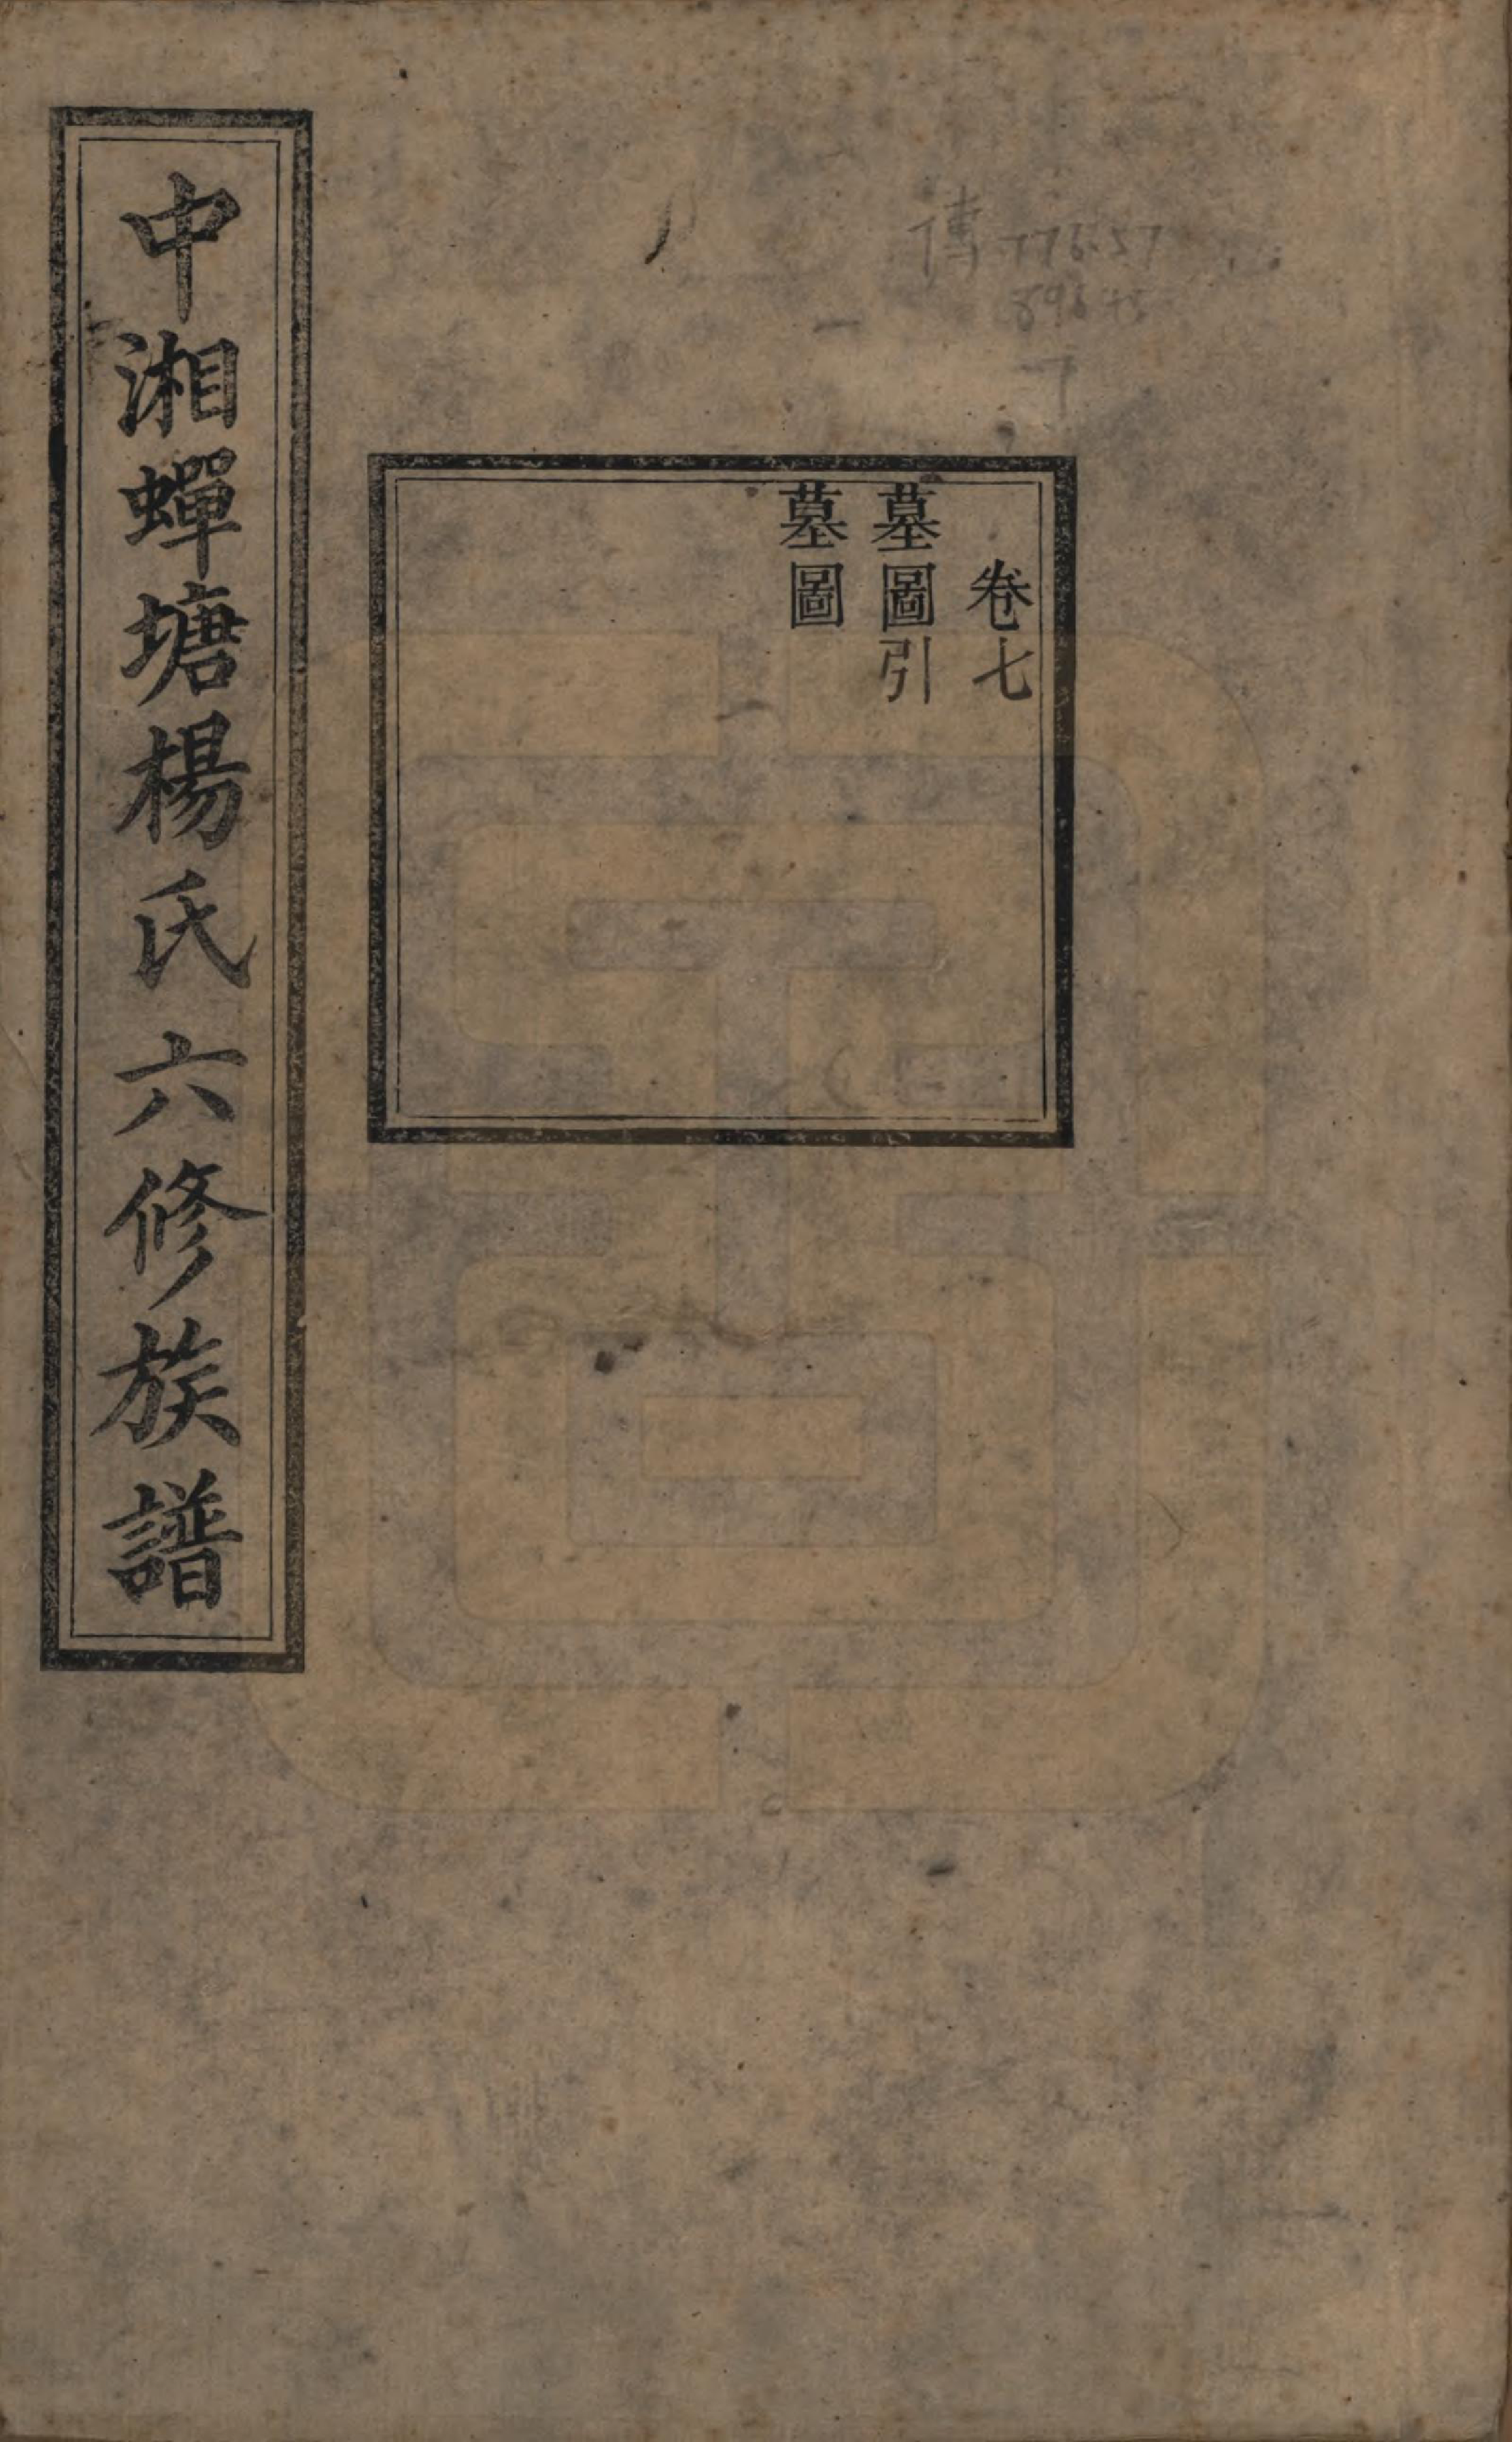 中湘蟬塘楊氏六修族譜
卷七
墓圖引
墓圖
傳 775.57